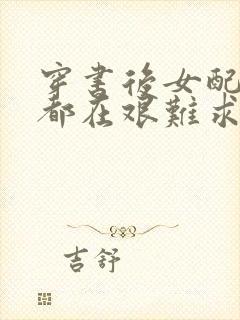 穿書後女配
都在艱難求
吉舒